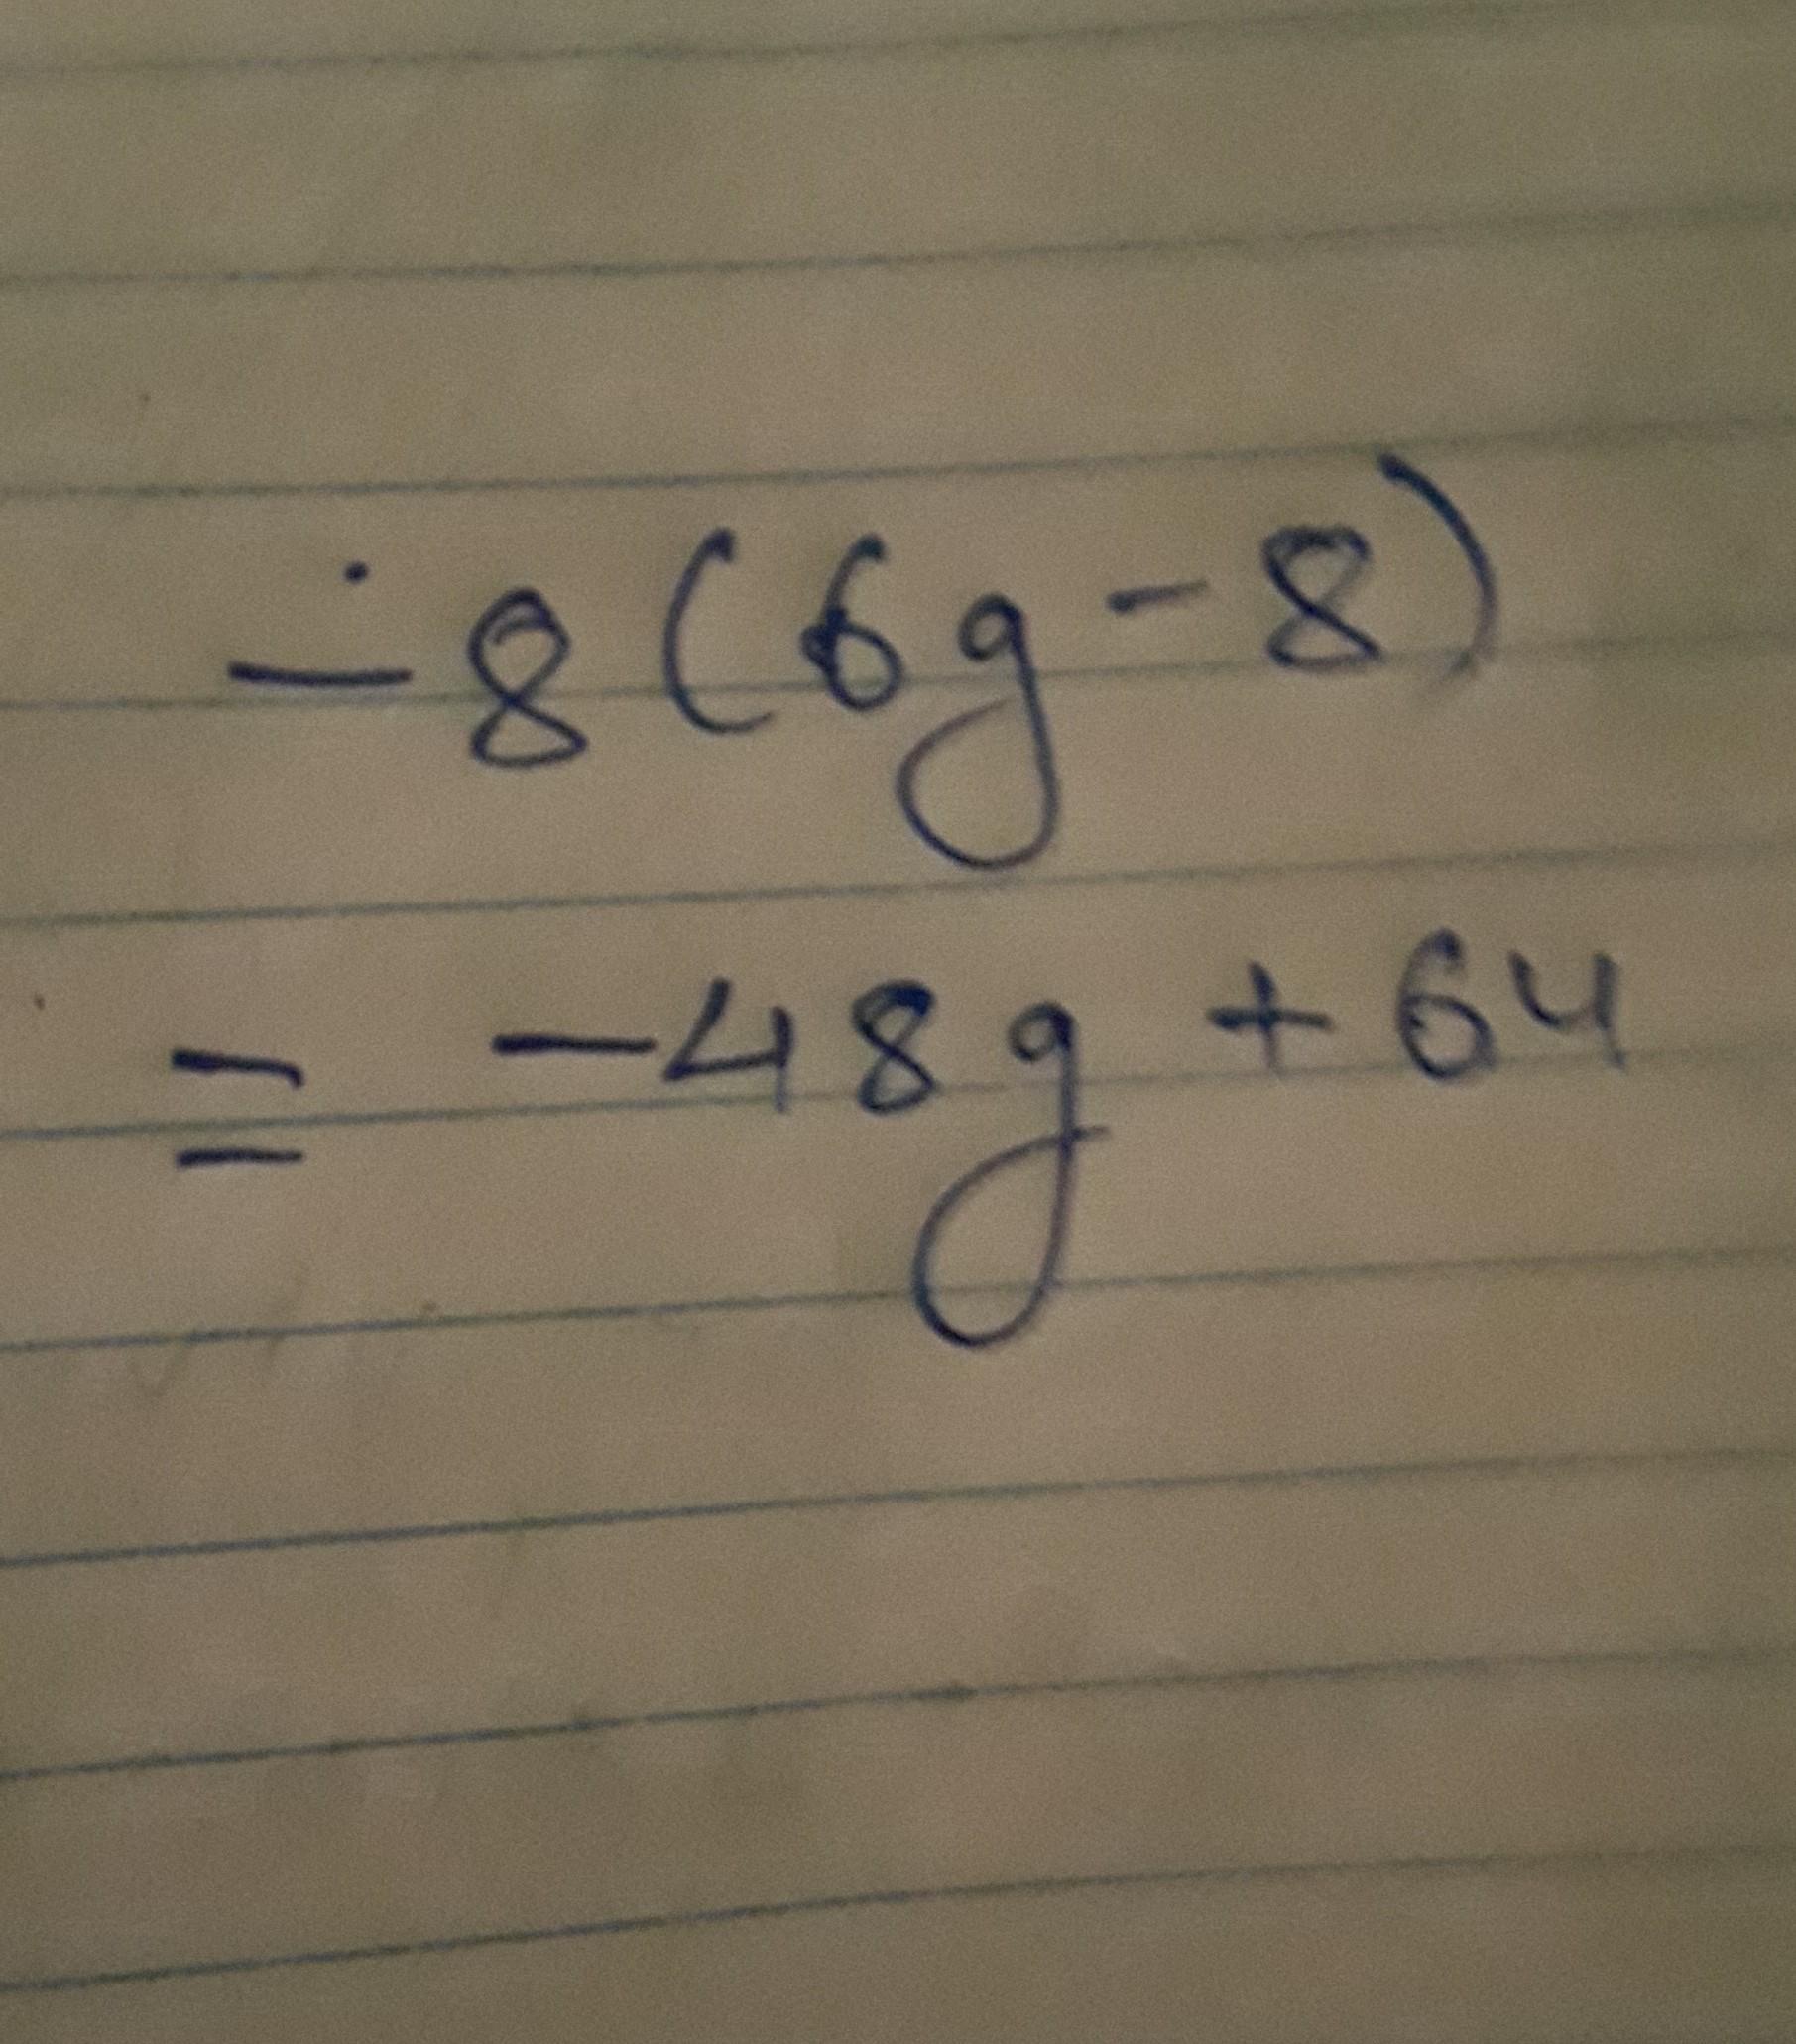 -8(6g-8)
= -48g + 64